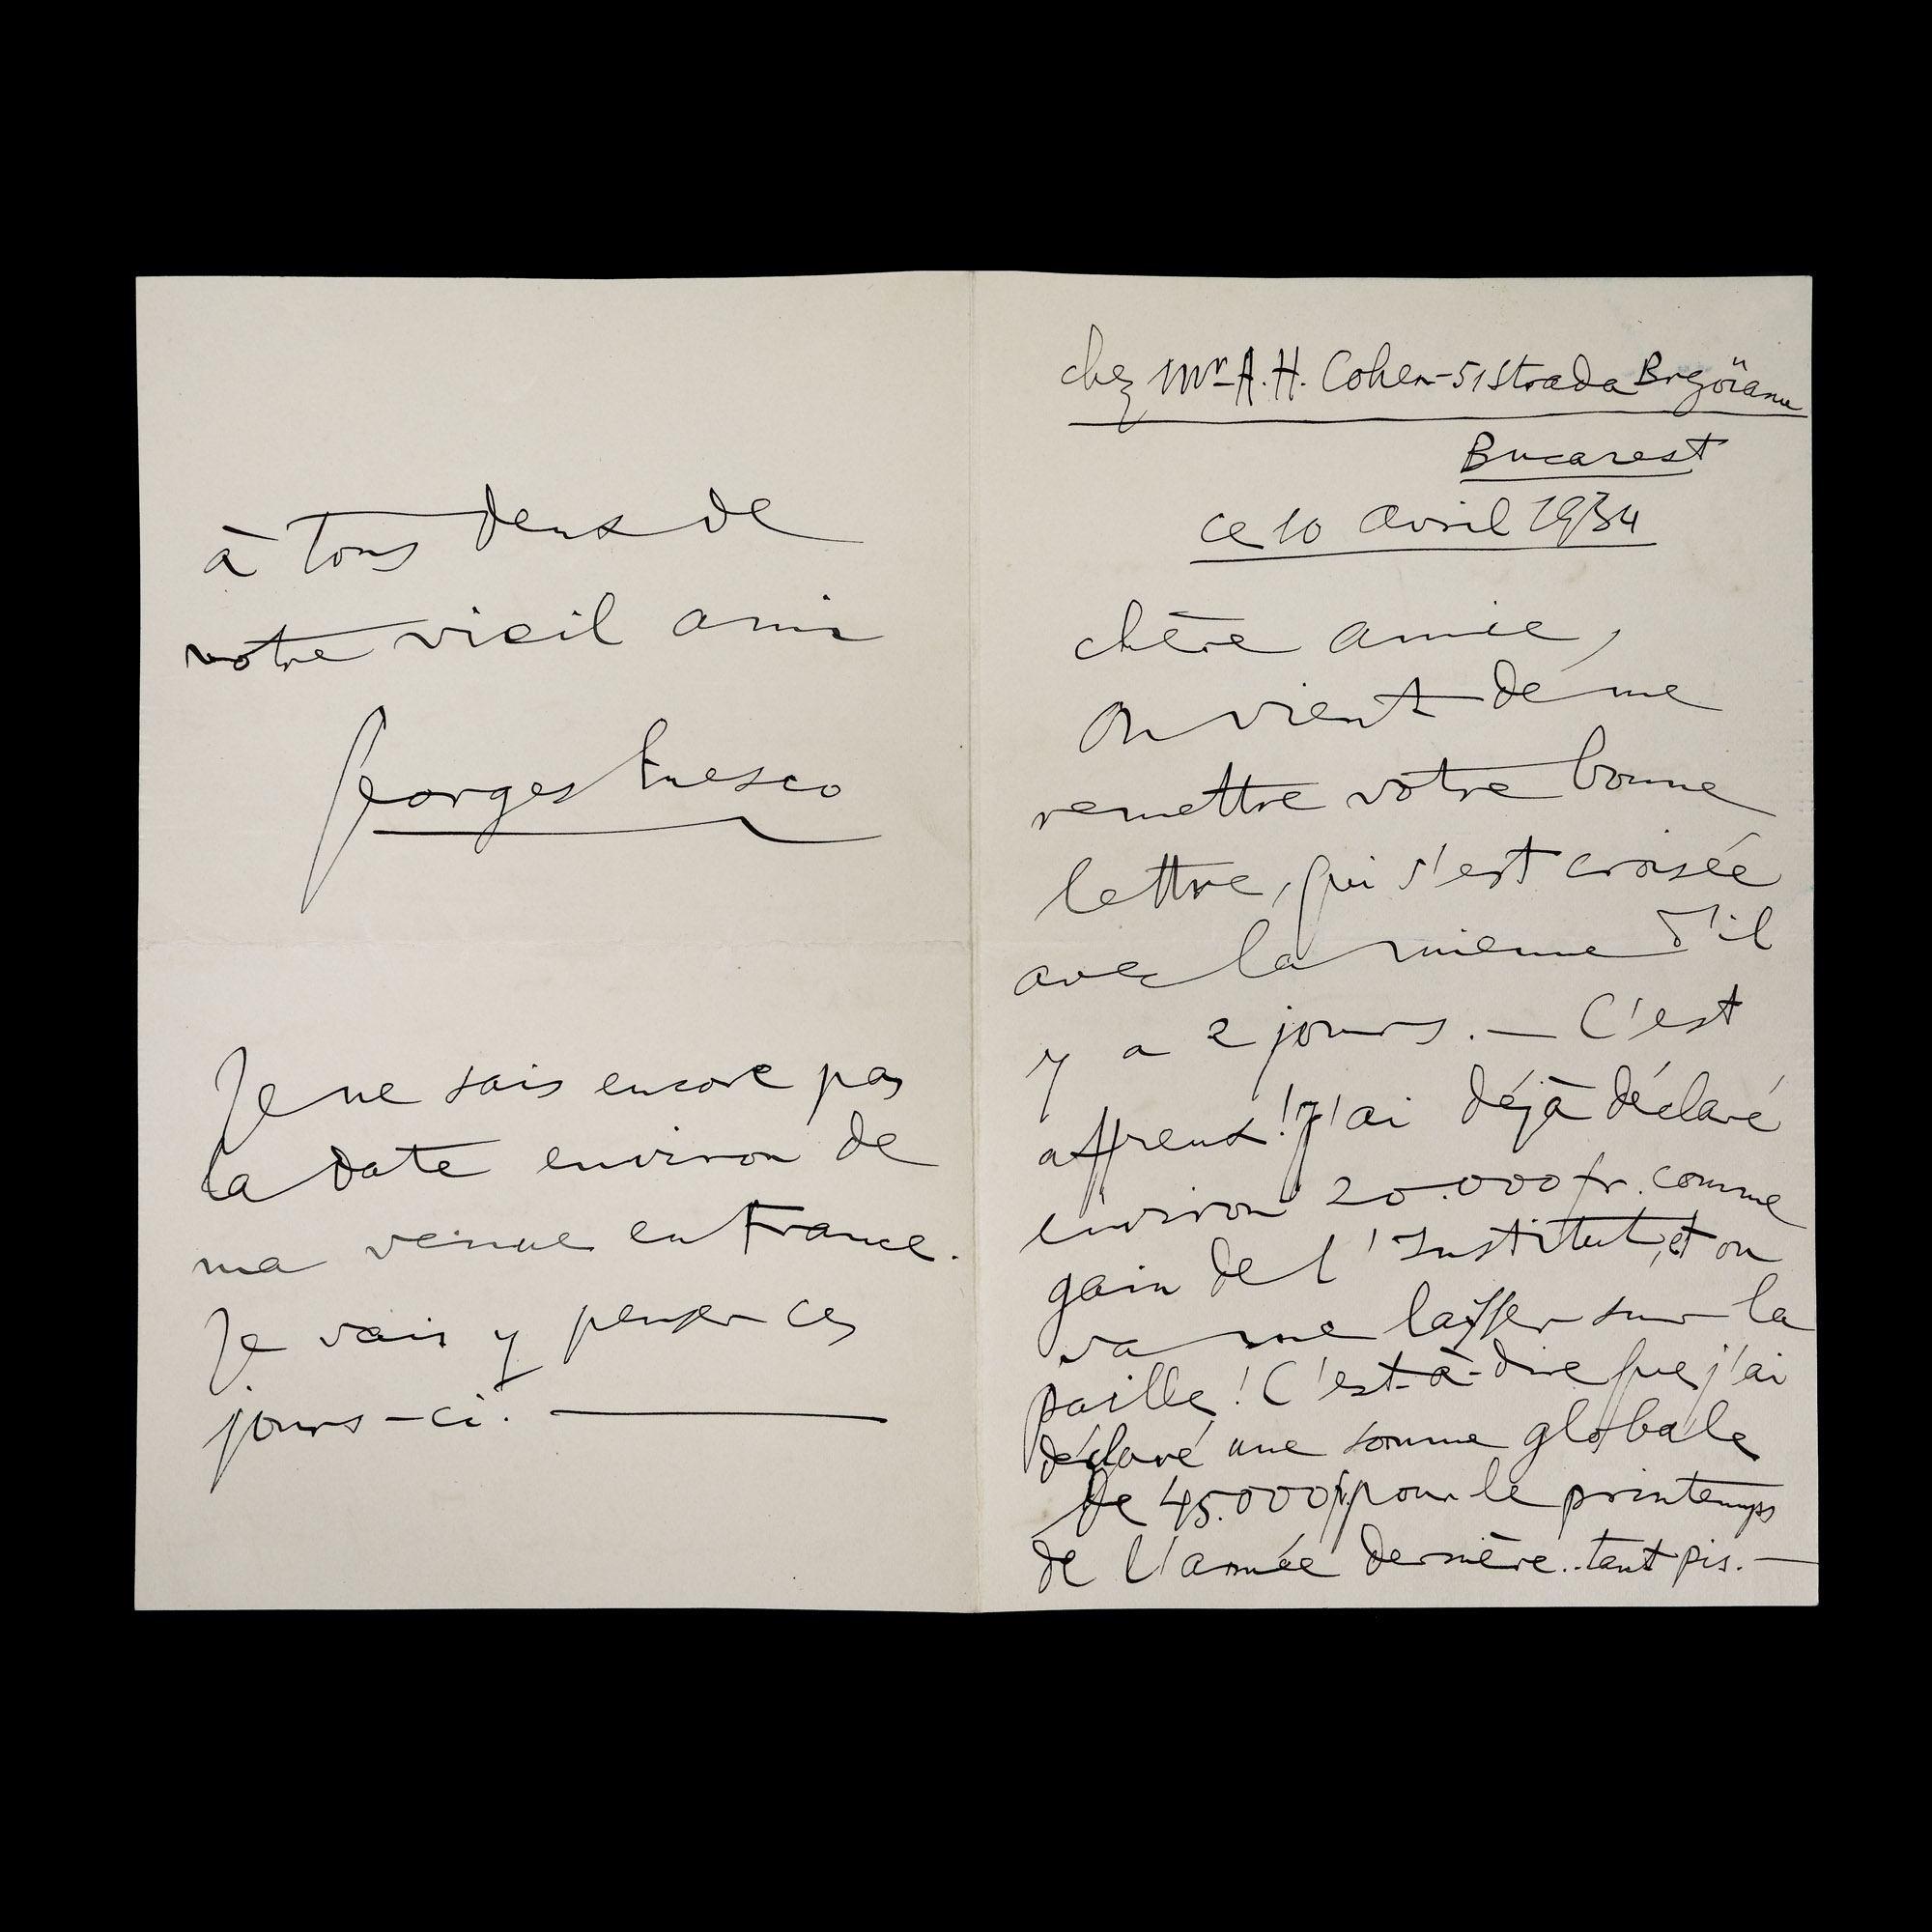 chez Mr A. H. Cohen - 51 Strada Brezoïanu
Bucarest
ce 10 avril 1934
chère amie,
On vient de me
remettre votre bonne
lettre, qui s'est croisée
avec la mienne d'il
y a 2 jours. — C'est
affreux! J'ai déjà déclaré
environ 20.000 fr. comme
gain de l'Institut, et on
va me laisser sur la
paille! C'est-à-dire que j'ai
déclaré une somme globale
de 45.000 fr pour le printemps
de l'année dernière.. tant pis. —
à tous deux de
votre vieil ami
Georges Enesco
Je ne sais encore pas
la date environ de
ma venue en France.
Je vais y penser ces
jours-ci. —